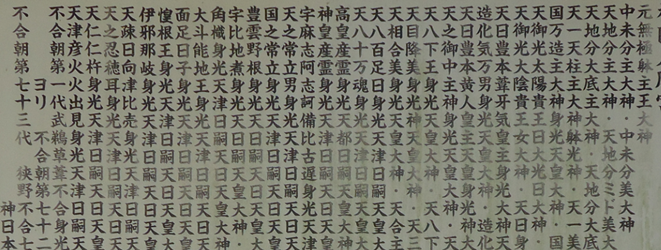 元無極躰主王大神
中未分主大神・中未分美大神
天地分大底主大神・天地分ミド美大
天一天柱主大神躰光神・天一美
国万造主大神身光天皇・国
天御光太陽貴王日大光日大神
天御光大陰貴王女大神
天日豊本葦牙気皇主身光大神天皇
造化気万男身光天皇大神・造化
天日豊本黄人皇主天皇
天之御中主神身光天皇大神
天八下王身光天皇大神・天八下
天目降美身光天皇大神・天
天相合美身光天皇大神・天合主
天八百足日身光天日天皇大神・天三
天八十万魂身光天皇大神
高皇産霊身光天都日嗣天皇大
神皇産霊身光天津日嗣天皇大
宇麻志阿志訶備比古遅身光天
天之常立男身光天津日嗣天日
国之常立身光天津日嗣天日天
豊雲野根身光天津日嗣天日天
宇比地煮身光天津日嗣天日天
角樴身光天津日嗣天日天皇
大斗能地王身光天津日嗣天日
面足日子身光天津日嗣天日天
惶根王身光天津日嗣天日天皇
伊邪那岐身光天津日嗣天日天
天疎日向津比売身光天津日嗣
天之忍穂耳身光天津日嗣天日
天仁仁杵身光天津日嗣天日天
天津彦火火出見身光天津日嗣天
不合朝第一代武鵜草葺不合身光
ヨリ 不合朝第七十二
不合朝第七十三代 狭野
神日本